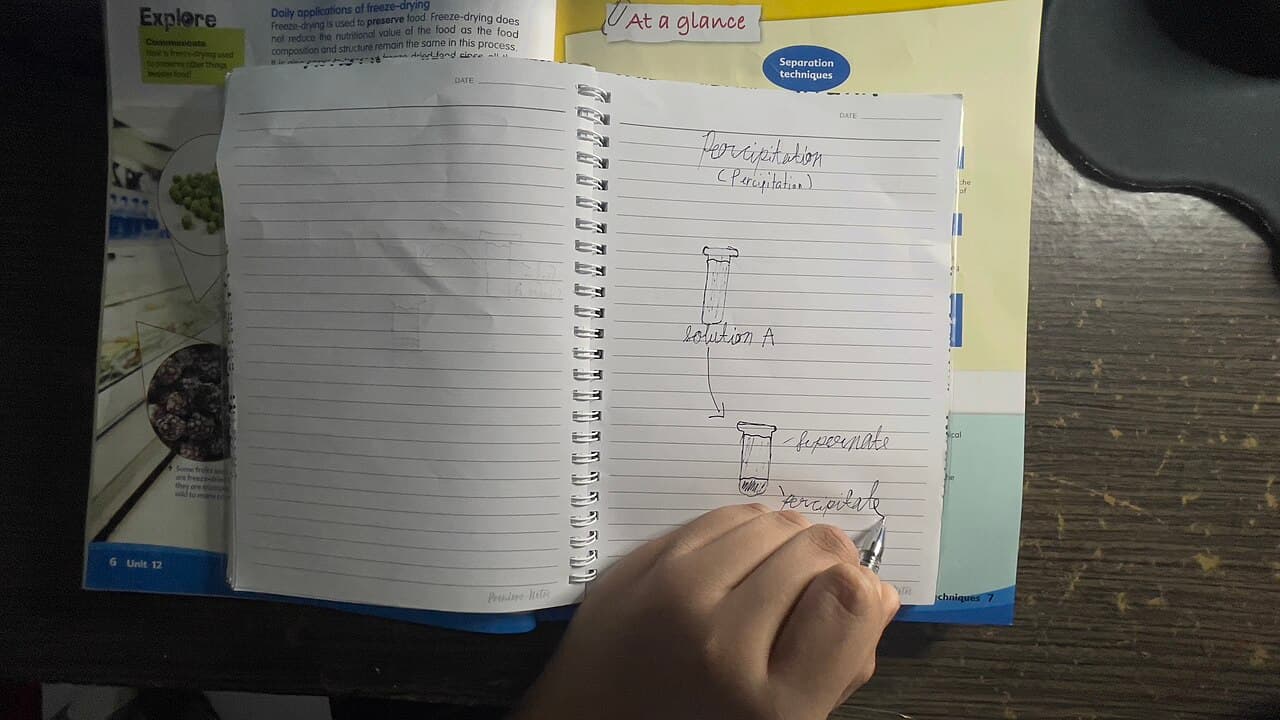 Explore
Communicate
How is freeze-drying used
to preserve other things
besides food?
Daily applications of freeze-drying
Freeze-drying is used to preserve food. Freeze-drying does
not reduce the nutritional value of the food as the food
composition and structure remain the same in this process.
At a glance
Separation
techniques
DATE
DATE
Percipitation
(Percipitation)
solution A
Supernate
Percipitate
Some fruits
are freeze-dried
they are
sold to many
6 Unit 12
Premiere Notes
techniques 7